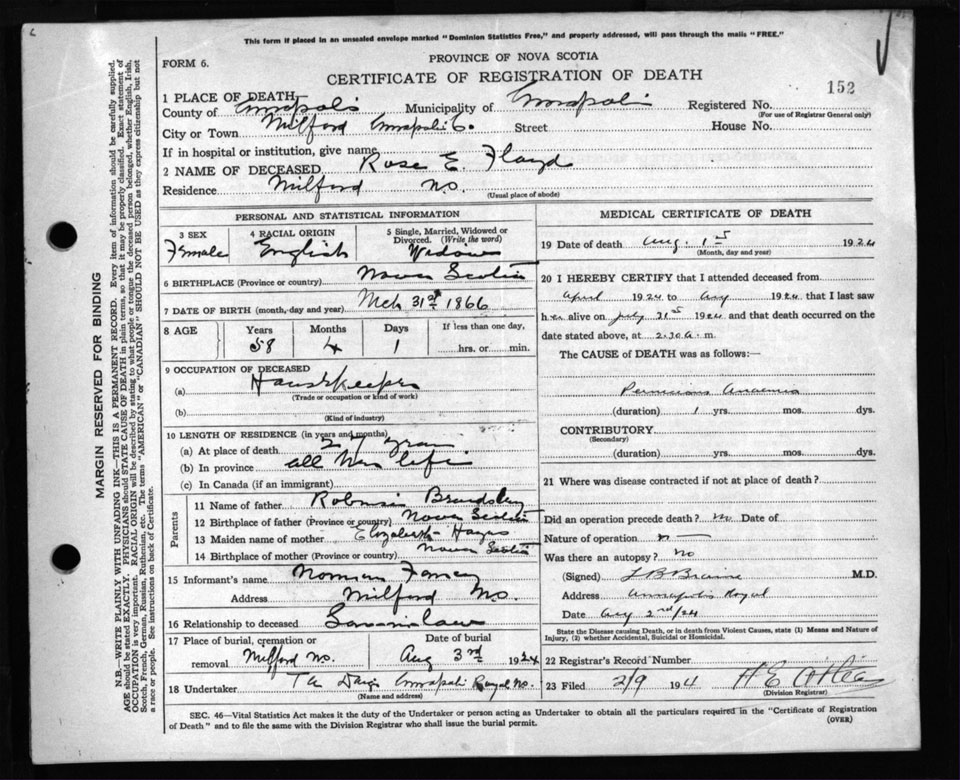 This form if placed in an unsealed envelope marked "Dominion Statistics Free," and properly addressed, will pass through the mails "FREE."
FORM 6.
PROVINCE OF NOVA SCOTIA
CERTIFICATE OF REGISTRATION OF DEATH
152
1 PLACE OF DEATH
County of Annapolis Municipality of Annapolis Registered No.
(For use of Registrar General only)
City or Town Milford Annapolis Co. Street House No.
If in hospital or institution, give name
2 NAME OF DECEASED Rose E. Floyd
Residence Milford N.S.
(Usual place of abode)
PERSONAL AND STATISTICAL INFORMATION
3 SEX 4 RACIAL ORIGIN 5 Single, Married, Widowed or Divorced. (Write the word)
Female English Widow
6 BIRTHPLACE (Province or country) Nova Scotia
7 DATE OF BIRTH (month, day and year) Mch 31st 1866
8 AGE Years Months Days If less than one day,
58 4 1 hrs. or min.
9 OCCUPATION OF DECEASED
(a) Housekeeper
(Trade or occupation or kind of work)
(b)
(Kind of industry)
10 LENGTH OF RESIDENCE (in years and months)
(a) At place of death 27 years
(b) In province all her life
(c) In Canada (if an immigrant)
Parents
11 Name of father Robinson
12 Birthplace of father (Province or country) Nova Scotia
13 Maiden name of mother Elizabeth Hayes
14 Birthplace of mother (Province or country) Nova Scotia
15 Informant's name Norman
Address Milford N.S.
16 Relationship to deceased Son in law
17 Place of burial, cremation or removal Milford N.S. Date of burial Aug 3rd 1924
18 Undertaker Annapolis Royal N.S.
(Name and address)
MEDICAL CERTIFICATE OF DEATH
19 Date of death Aug. 1st 1924
(Month, day and year)
20 I HEREBY CERTIFY that I attended deceased from
April 1924 to Aug 1924 that I last saw
her alive on July 31st 1924 and that death occurred on the
date stated above, at 2.30 a. m.
The CAUSE of DEATH was as follows:—
Pernicious Anaemia
(duration) 1 yrs. mos. dys.
CONTRIBUTORY
(Secondary)
(duration) yrs. mos. dys.
21 Where was disease contracted if not at place of death?
Did an operation precede death? no Date of
Nature of operation
Was there an autopsy? No
(Signed) L B Braine M.D.
Address Annapolis Royal
Date Aug 2nd/24
State the Disease causing Death, or in death from Violent Causes, state (1) Means and Nature of Injury, (2) whether Accidental, Suicidal or Homicidal.
22 Registrar's Record Number
23 Filed 2/9 1924
(Division Registrar)
SEC. 46—Vital Statistics Act makes it the duty of the Undertaker or person acting as Undertaker to obtain all the particulars required in the "Certificate of Registration
of Death" and to file the same with the Division Registrar who shall issue the burial permit.
(OVER)
MARGIN RESERVED FOR BINDING
N.B.—WRITE PLAINLY WITH UNFADING INK—THIS IS A PERMANENT RECORD. Every item of information should be carefully supplied.
AGE should be stated EXACTLY. PHYSICIANS should STATE CAUSE OF DEATH in plain terms, so that it may be properly classified. Exact statement of
OCCUPATION is very important. RACIAL ORIGIN will be described by stating to what people or tongue the deceased person belonged, whether English, Irish,
Scotch, French, German, Russian, Ruthenian, etc. The terms "AMERICAN" or "CANADIAN" SHOULD NOT BE USED as they express citizenship but not
a race or people. See instructions on back of Certificate.